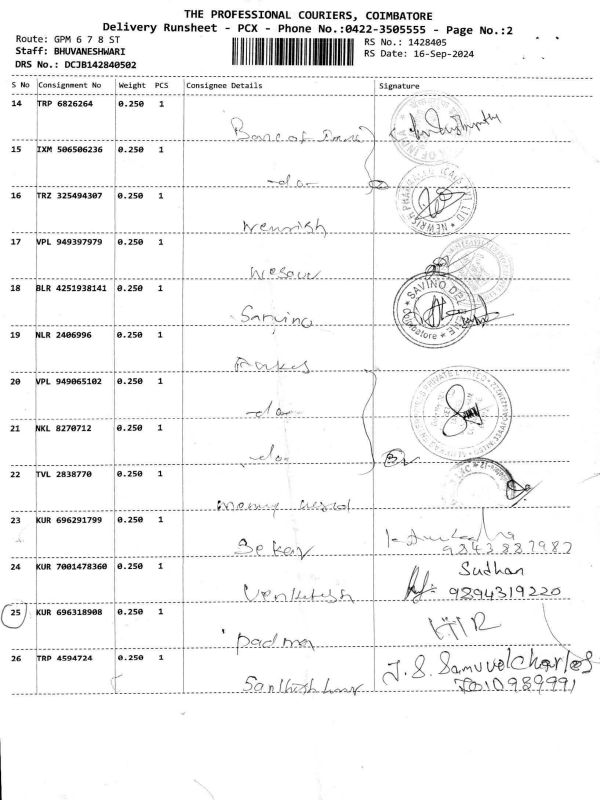 THE PROFESSIONAL COURIERS, COIMBATORE
Delivery Runsheet - PCX - Phone No.:0422-3505555 - Page No.:2
Route: GPM 6 7 8 ST
RS No.: 1428405
Staff: BHUVANESHWARI
RS Date: 16-Sep-2024
DRS No.: DCJB142840502
S No Consignment No Weight PCS Consignee Details Signature
14 TRP 6826264 0.250 1
Banc of
15 IXM 506506236 0.250 1
-do-
16 TRZ 325494307 0.250 1
NEWRISH
17 VPL 949397979 0.250 1
18 BLR 4251938141 0.250 1
Sarvino
SAVINO DEL BENE
Coimbatore
19 NLR 2406996 0.250 1
20 VPL 949065102 0.250 1
-do-
21 NKL 8270712 0.250 1
-do-
22 TVL 2838770 0.250 1
23 KUR 696291799 0.250 1
Sekar
24 KUR 7001478360 0.250 1
Sudhan
Venkatesh 9894319220
25 KUR 696318908 0.250 1
Padma
26 TRP 4594724 0.250 1
J. S. Samuvel Charles
7010989991